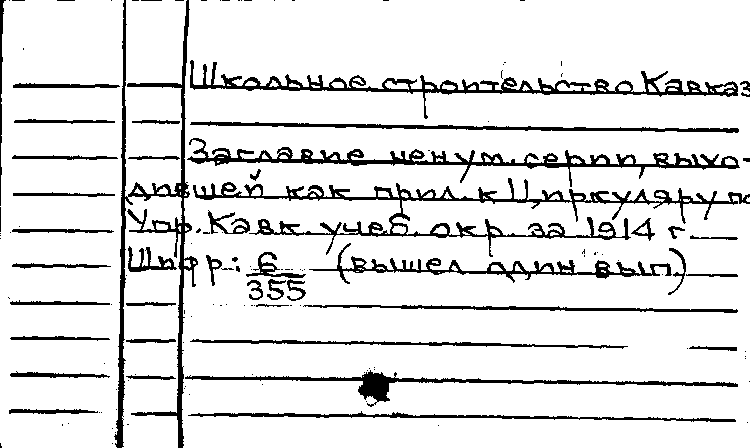 Школьное строительство Кавказ
Заглавие ненум. серии, выхо-
дившей как прил. к Циркуляру по
Упр. Кавк. учеб. окр. за 1914 г.
Шифр: 6/355 (вышел один вып.)